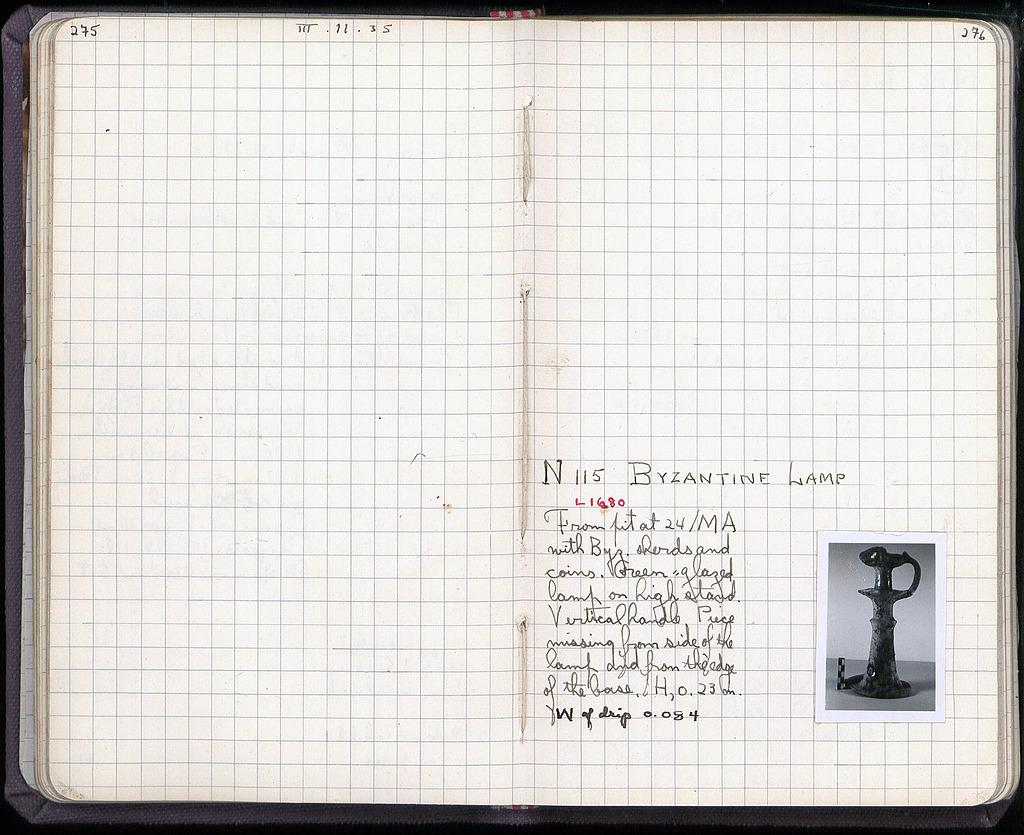 275
III . 11 . 35
276
N 115 BYZANTINE LAMP
L1680
From pit at 24/MA
with Byz. sherds and
coins. Green-glazed
lamp on high stand.
Vertical handle. Piece
missing from side of the
lamp and from the edge
of the base. H, 0.23 m.
W of drip 0.084